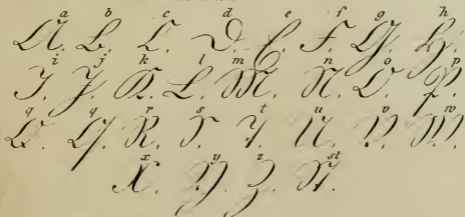 a b c d e f g h
A. B. C. D. E. F. G. H.
i j k l m n o p
I. J. K. L. M. N. O. P.
q q r s t u v w
Q. Q. R. S. T. U. V. W.
x y z st
X. Y. Z. St.